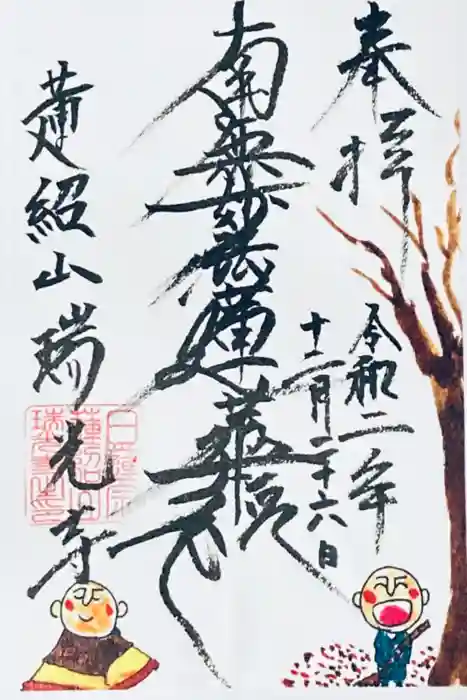 奉拝
令和二年
十二月二十六日
南無妙法蓮華経
蓮紹山瑞光寺
日蓮宗
蓮紹山
瑞光寺